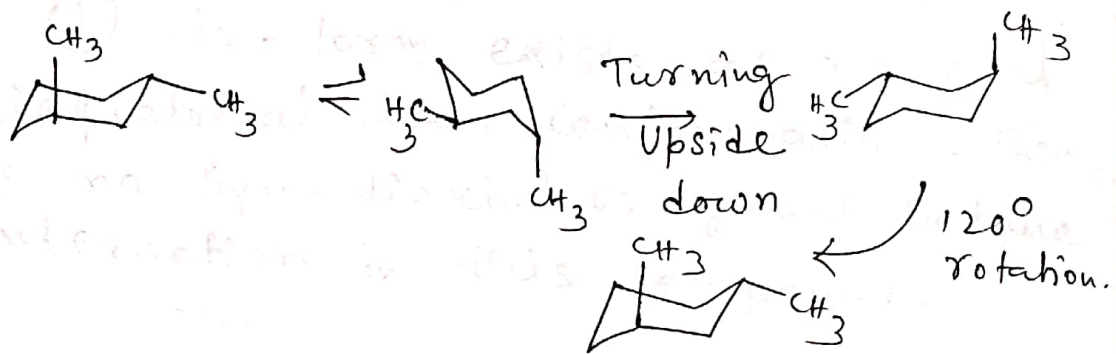 CH3
CH3
⇌
H3C
CH3
Turning
Upside
down
H3C
CH3
120°
rotation.
CH3
CH3